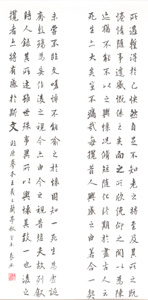 所遇蹔得於己快然自足不知老之將至及其所之既
惓情隨事遷感慨係之矣向之所欣俛仰之間以為陳
迹猶不能不以之興懷況脩短隨化終期於盡古人云
死生亦大矣豈不痛哉每攬昔人興感之由若合一契
未嘗不臨文嗟悼不能喻之於懷固知一死生為虛誕
齊彭殤為妄作後之視今亦由今之視昔悲夫故列敘
時人錄其所述雖世殊事異所以興懷其致一也後之
攬者亦將有感於斯文